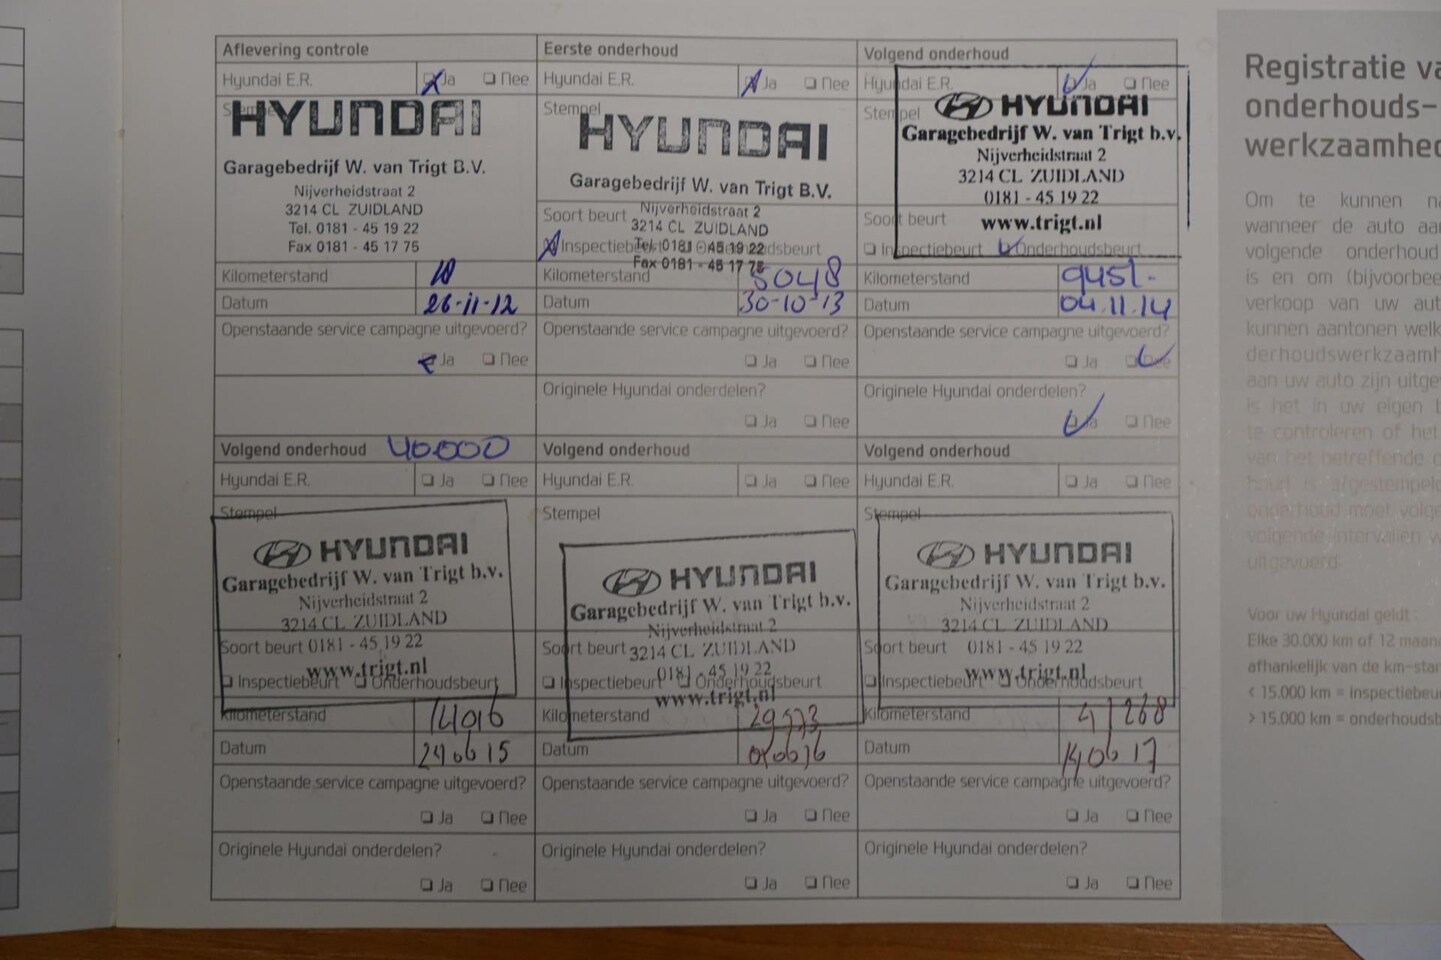 Aflevering controle
Hyundai E.R. Ja Nee
Stempel
HYUNDAI
Garagebedrijf W. van Trigt B.V.
Nijverheidstraat 2
3214 CL ZUIDLAND
Tel. 0181 - 45 19 22
Fax 0181 - 45 17 75
Kilometerstand 10
Datum 26-11-12
Openstaande service campagne uitgevoerd?
Ja Nee
Eerste onderhoud
Hyundai E.R. Ja Nee
Stempel
HYUNDAI
Garagebedrijf W. van Trigt B.V.
Soort beurt Nijverheidstraat 2
3214 CL ZUIDLAND
Inspectiebeurt Tel. 0181 - 45 19 22 Onderhoudsbeurt
Fax 0181 - 45 17 75
Kilometerstand 5048
Datum 30-10-13
Openstaande service campagne uitgevoerd?
Ja Nee
Originele Hyundai onderdelen?
Ja Nee
Volgend onderhoud
Hyundai E.R. Ja Nee
Stempel
HYUNDAI
Garagebedrijf W. van Trigt b.v.
Nijverheidstraat 2
3214 CL ZUIDLAND
0181 - 45 19 22
Soort beurt www.trigt.nl
Inspectiebeurt Onderhoudsbeurt
Kilometerstand 9451-
Datum 04.11.14
Openstaande service campagne uitgevoerd?
Ja Nee
Originele Hyundai onderdelen?
Ja Nee
Volgend onderhoud 40.000
Hyundai E.R. Ja Nee
Stempel
HYUNDAI
Garagebedrijf W. van Trigt b.v.
Nijverheidstraat 2
3214 CL ZUIDLAND
Soort beurt 0181 - 45 19 22
www.trigt.nl
Inspectiebeurt Onderhoudsbeurt
Kilometerstand
Datum 240615
Openstaande service campagne uitgevoerd?
Ja Nee
Originele Hyundai onderdelen?
Ja Nee
Volgend onderhoud
Hyundai E.R. Ja Nee
Stempel
HYUNDAI
Garagebedrijf W. van Trigt b.v.
Nijverheidstraat 2
Soort beurt 3214 CL ZUIDLAND
0181 - 45 19 22
Inspectiebeurt Onderhoudsbeurt
www.trigt.nl
Kilometerstand 29573
Datum
Openstaande service campagne uitgevoerd?
Ja Nee
Originele Hyundai onderdelen?
Ja Nee
Volgend onderhoud
Hyundai E.R. Ja Nee
Stempel
HYUNDAI
Garagebedrijf W. van Trigt b.v.
Nijverheidstraat 2
3214 CL ZUIDLAND
Soort beurt 0181 - 45 19 22
www.trigt.nl
Inspectiebeurt Onderhoudsbeurt
Kilometerstand 41268
Datum 140617
Openstaande service campagne uitgevoerd?
Ja Nee
Originele Hyundai onderdelen?
Ja Nee
Registratie va
onderhouds-
werkzaamhed
Om te kunnen na
wanneer de auto aan
volgende onderhoud
is en om (bijvoorbee
verkoop van uw aut
kunnen aantonen welk
derhoudswerkzaamh
aan uw auto zijn uitge
is het in uw eigen b
te controleren of het
van het betreffende o
onderhoud moet volge
volgende intervallen w
uitgevoerd.
Voor uw Hyundai geldt
Elke 30.000 km of 12 maand
afhankelijk van de km-stan
< 15.000 km = inspectiebeu
> 15.000 km = onderhoudsb